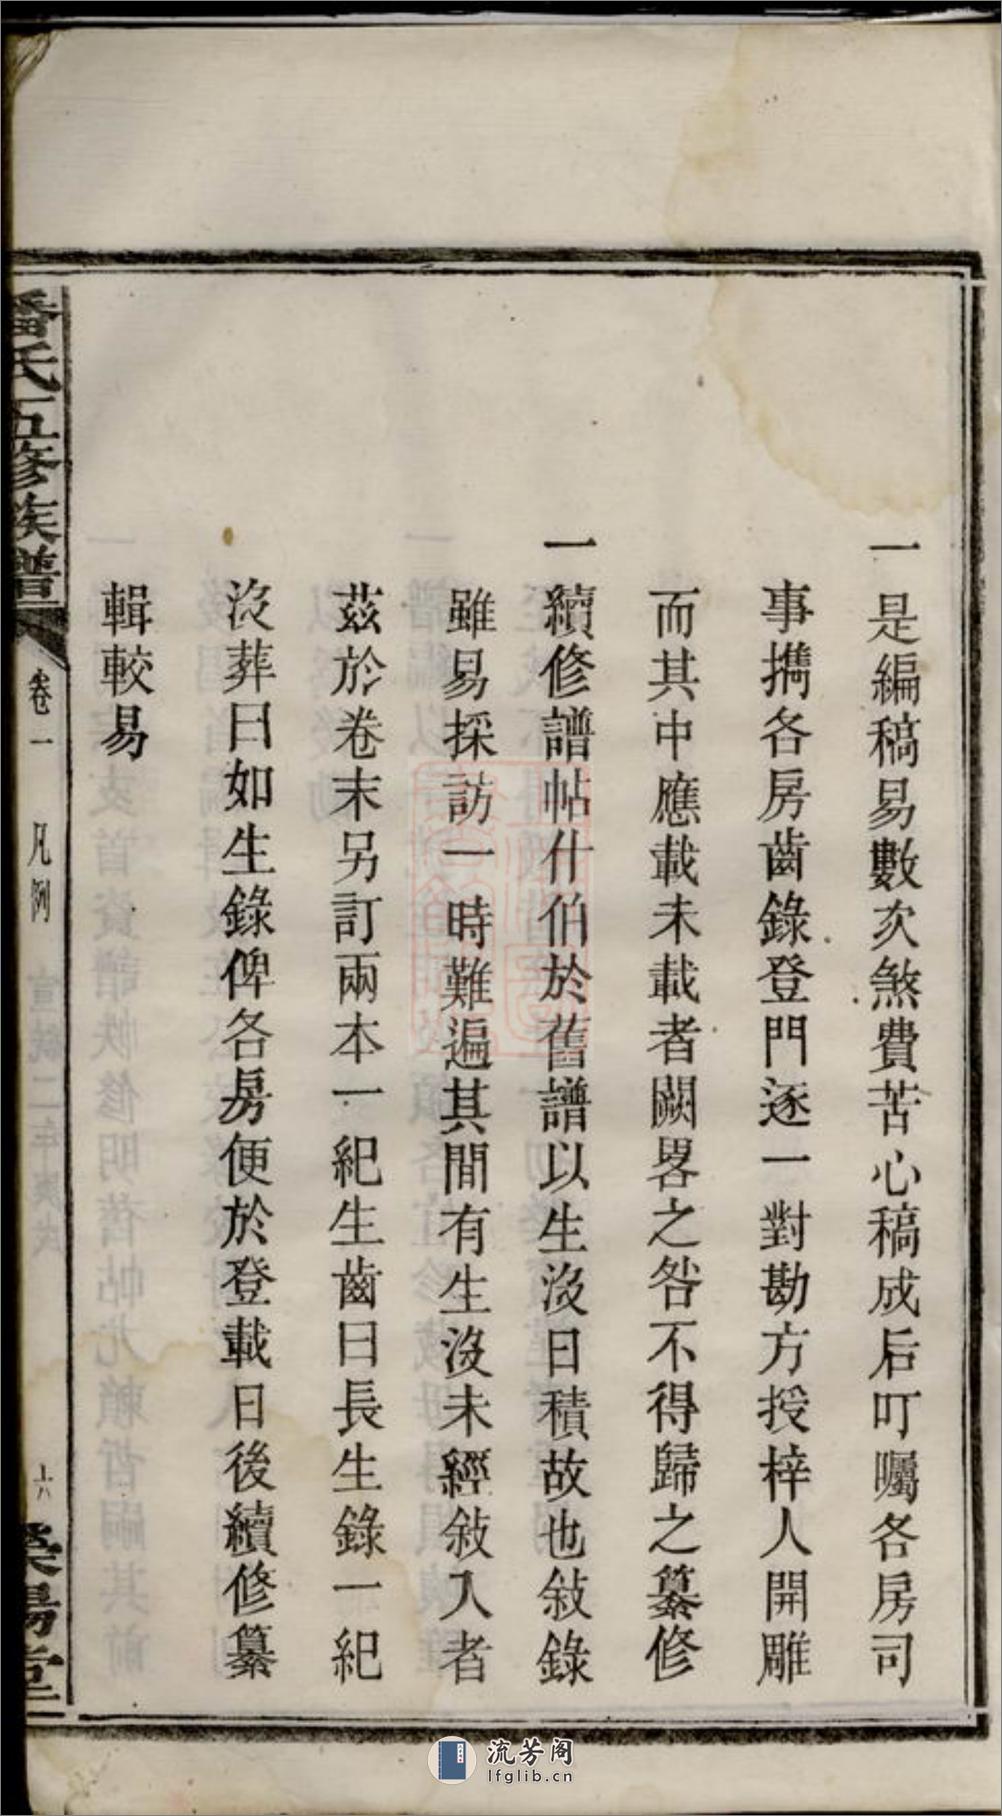 一是編稿易數次煞費苦心稿成后叮囑各房司
事携各房齒錄登門逐一對勘方授梓人開雕
而其中應載未載者闕畧之咎不得歸之纂修
一續修譜帖什伯於舊譜以生沒日積故也敍錄
雖易採訪一時難遍其間有生沒未經敍入者
茲於卷末另訂兩本一紀生齒曰長生錄一紀
沒葬曰如生錄俾各房便於登載日後續修纂
輯較易
潘氏五修族譜
卷一 凡例
六
堂
流芳阁
lfglib.cn